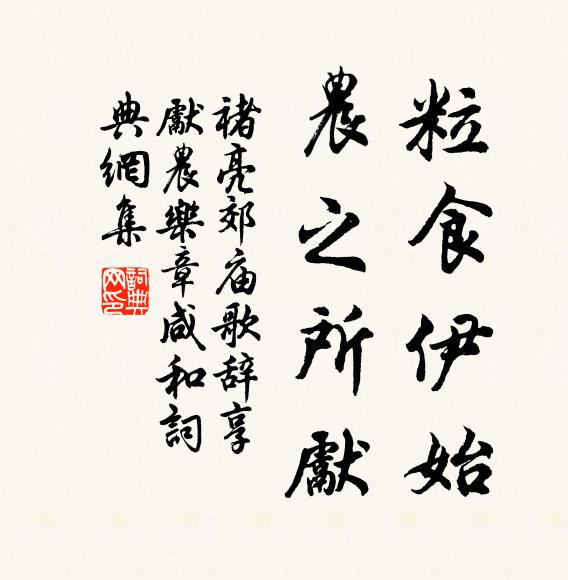 粒食伊始
農之所獻
褚亮郊庙歌辞享
獻農樂章咸和詞
典網集
詞典网印